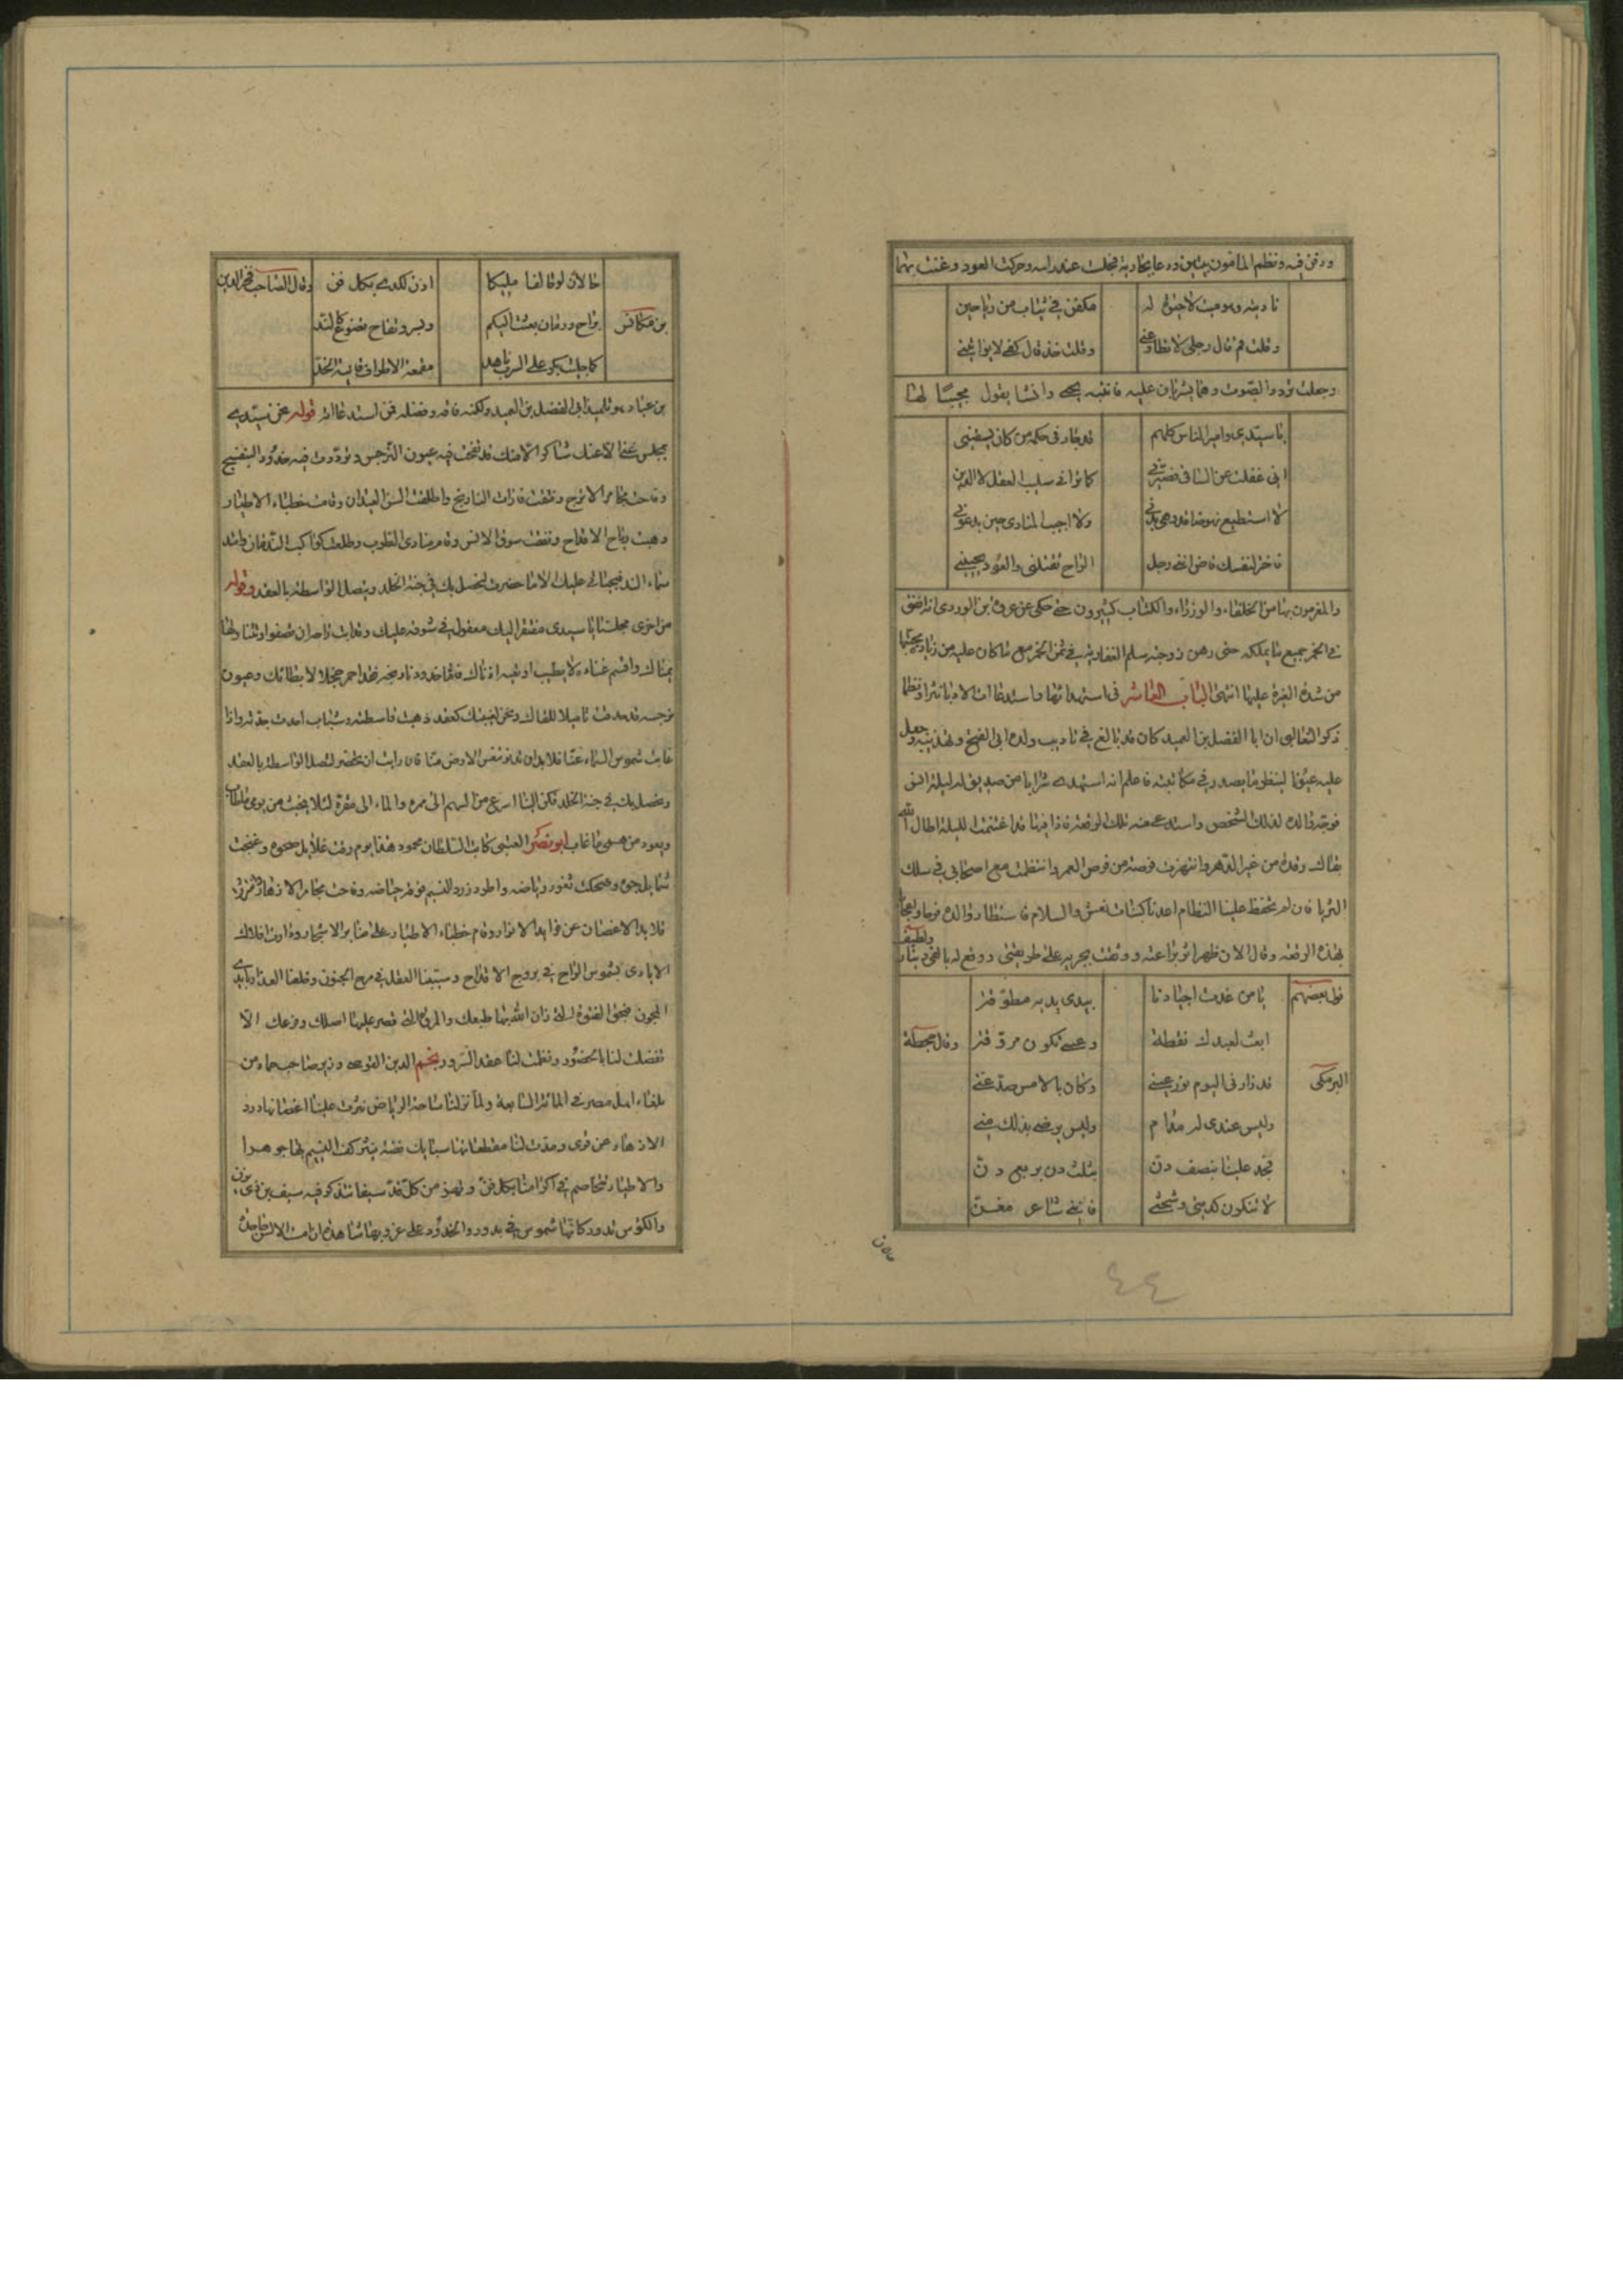 ودفن فيه ونظم المأمون بيتين ودعا بجارية فجلست عند راسه وحركت العود وغنت بهما
ناديته وهو ميت لا حيوة له مكفن في ثياب من رياحين
وقلت قم قال رجلي لا تطاوعني وقلت خذ قال كفي لا يواتيني
وجعلت تردد الصوت وهما يشربان عليه فانتبه يحيى وانشا يقول مجيبًا لها
يا سيدي وامير الناس كلهم قد جار في حكمه من كان يسقيني
اني غفلت عن الساقي فصيرني كما تراني سليب العقل والدين
لا استطيع نهوضا قد وهي بدني ولا اجيب المنادي حين يدعوني
فاختر لنفسك قاض انني رجل الراح تقتلني والعود يحييني
والمغرمون بها من الخلفاء والوزراء والكتاب كثيرون حتى حكى عن عروة بن الورد انه انفق
في الخمر جميع ما يملكه حتى رهن زوجته سلمى الغفارية في ثمن الخمر مع ما كان عليه من زيادة محبتها
من شدة الغيرة عليها انتهى الباب العاشر في استهدائها واستدعاء الادبا نثرا ونظما
ذكر الثعالبي ان ابا الفضل بن العميد كان قد بالغ في تاديب ولده ابي الفتح وتهذيبه وجعل
عليه عيونا لينظر ما يصدر في مكاتبته فاعلم انه استهدى شرابا من صديق له ليلة انس
فوجه والده لذلك الشخص واستدعى منه تلك الرقعة فاذا فيها قد اغتنمت الليلة اطال الله
بقاك رقدة من عين الدهر وانتهزت فرصة من فرص العمر وانتظمت مع اصحابي في سلك
الثريا فان لم تحفظ علينا النظام اعدنا كبنات نعش والسلام فاستطار والده فرحا واعجابا
بهذه الرقعة وقال الان ظهر اثر براعته ووثقت بجريه على طريقتي ووقع له بالفي دينار ولطيف
قول بعضهم يا من غدت اجيادنا بيدي يديه مطوقة
ابعث لعبدك نقطة وعسى تكون مروقة وقال جحظة
البرمكي قد زارني اليوم نور عيني وكان بالامس صد عني
وليس عندي له مدام وليس يرضى بذلك مني
فجد علينا بنصف دن بثلث دن بربع دن
لا تنكرن كديتي وشحتي فانني شاعر مغن
خالان لو قالها مليكا اذن لكدى بكل فن وقال الصاحب فخر الدين
بن مكانس براح وريحان بعثنا اليكم
بن عباد وتلميذ ابي الفضل بن العميد ولكنه فاقه وفضله فمن استدعائه قوله نحن سيدي
بمجلس غني الا عنك شاكر الا منك قد تفتحت فيه عيون النرجس وتوردت فيه خدود البنفسج
وفاحت مجامر الاترج وفتقت فارات النارنج وانطلقت السن العيدان وقامت خطباء الاطيار
وهبت رياح الاقداح ونفقت سوق الانس وقام منادي الطرب وطلعت كواكب الندمان وامتد
سماء الند فبحياتي عليك الا ما حضرت لنحصل بك في جنة الخلد ويتصل الواسطة بالعقد وقوله
من اخرى مجلسنا يا سيدي مفتقر اليك معول في شوقه عليك وقد ابت راحه ان تصفو او تتناولها
يمناك واقسم غناءه لا يطيب او تعيه اذناك فاما خدود نارنجه فقد احمر خجلا لابطائك وعيون
نرجسه قد حدقت تاميلا للقائك ونحن لغيبتك كعقد ذهبت واسطته وشباب اخذت جدته واذا
غابت شموس السماء عنا فلا بد ان تدنو شمس الارض منا فان رايت ان تحضر لتتصل الواسطة بالعقد
ونحصل بك في جنة الخلد فكن الينا اسرع من السهم الى ممره والماء الى مقره لئلا يخبث من يومي ما طاب
ويعود من همي ما غاب ابو نصر العتبي كاتب السلطان محمود هذا يوم رقت غلايل صحوه وغنجت
شمايل جوه وضحكت ثغور رياضه واطرد زرد النسيم فوق حياضه وفاحت مجامر الازهار وانتثرت
قلايد الاغصان عن فرايد الانوار وقام خطباء الاطيار على منابر الاشجار ودارت افلاك
الايادي بشموس الراح في بروج الاقداح وسيبنا العقل في مرج الجنون وخلعنا العذار بايدي
المجون فبحق الفتوة التي زان الله بها طبعك والمروة التي قصر عليها اصلك وفرعك الا
تفضلت لنا بالحضور ونظمت لنا عقد السرور نجم الدين القوصي وزير صاحب حماه من
بلغاء اهل مصر في المائة السابعة ولما نزلنا ساحة الرياض نثرت علينا اغصانها درر
الازهار عن قرى ومدت لنا مقطعاتها سبايك فضة ينثر كف النسيم بها جوهرا
والاطيار تخاصم في اكرامنا بكل فن وتهز من كل قد سيفا تذكر فيه سيف بن ذي يزن
والكؤس تدور كانها شموس في بدور والخدود على
٤٤